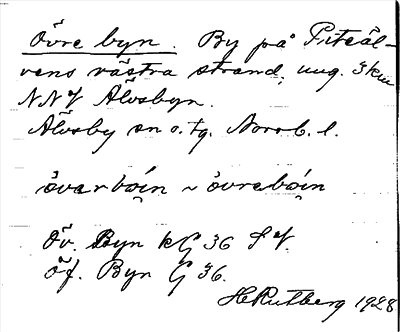 Övre byn. By på Piteäl-
vens västra strand, ung. 3 km
NNV Älvsbyn.
Älvsby sn o. tg. Norrb. l.
åvarbo̤in ~ åvrebo̤in
Öv. Byn kG 36 SV.
Öf. Byn G 36.
H Rutberg 1928